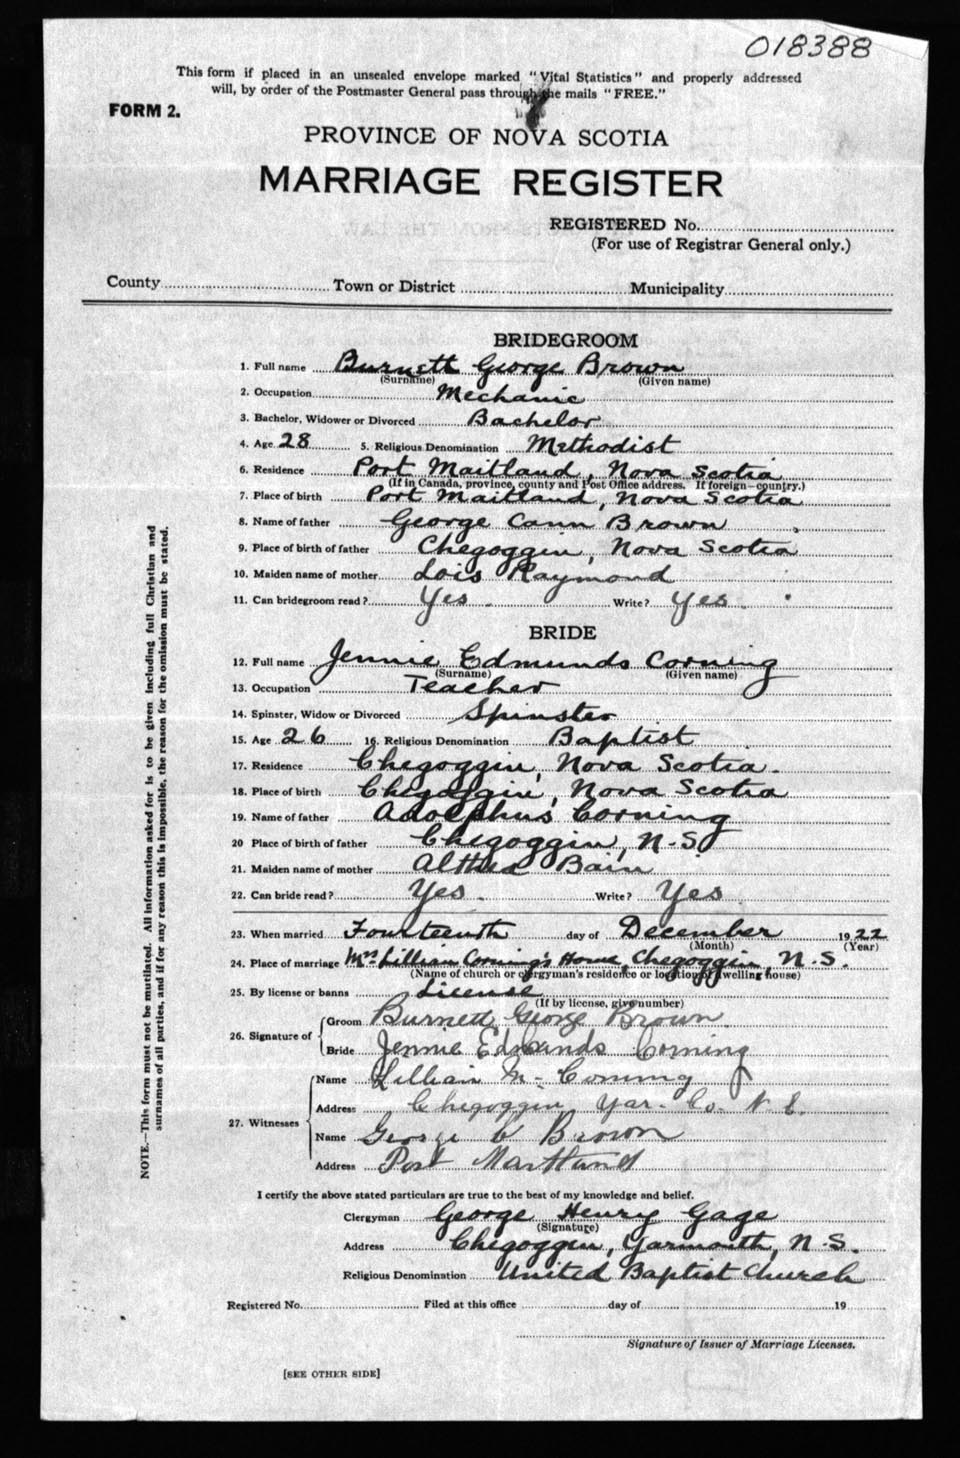 018388
This form if placed in an unsealed envelope marked "Vital Statistics" and properly addressed
will, by order of the Postmaster General pass through the mails "FREE."
FORM 2.
PROVINCE OF NOVA SCOTIA
MARRIAGE REGISTER
REGISTERED No.
(For use of Registrar General only.)
County Town or District Municipality
BRIDEGROOM
1. Full name Burnett George Brown
(Surname) (Given name)
2. Occupation Mechanic
3. Bachelor, Widower or Divorced Bachelor
4. Age 28 5. Religious Denomination Methodist
6. Residence Port Maitland, Nova Scotia
(If in Canada, province, county and Post Office address. If foreign—country.)
7. Place of birth Port Maitland, Nova Scotia
8. Name of father George Cann Brown
9. Place of birth of father Chegoggin, Nova Scotia
10. Maiden name of mother Lois Raymond
11. Can bridegroom read? Yes. Write? Yes.
BRIDE
12. Full name Jennie Edmunds Corning
(Surname) (Given name)
13. Occupation Teacher
14. Spinster, Widow or Divorced Spinster
15. Age 26 16. Religious Denomination Baptist
17. Residence Chegoggin, Nova Scotia.
18. Place of birth Chegoggin, Nova Scotia
19. Name of father Adolphus Corning
20 Place of birth of father Chegoggin, N.S.
21. Maiden name of mother Althea Bain
22. Can bride read? Yes. Write? Yes
23. When married Fourteenth day of December 1922
(Month) (Year)
24. Place of marriage Mrs Lillian Corning's Home, Chegoggin, N.S.
(Name of church or clergyman's residence or location of dwelling house)
25. By license or banns License
(If by license, give number)
26. Signature of Groom Burnett George Brown.
Bride Jennie Edmunds Corning
27. Witnesses
Name Lillian M. Corning
Address Chegoggin Yar. Co. N.S.
Name George C Brown
Address Port Maitland
I certify the above stated particulars are true to the best of my knowledge and belief.
Clergyman George Henry Gage
(Signature)
Address Chegoggin, Yarmouth, N.S.
Religious Denomination United Baptist Church
Registered No. Filed at this office day of 19
Signature of Issuer of Marriage Licenses.
[SEE OTHER SIDE]
NOTE.—This form must not be mutilated. All information asked for is to be given including full Christian and
surnames of all parties, and if for any reason this is impossible, the reason for the omission must be stated.